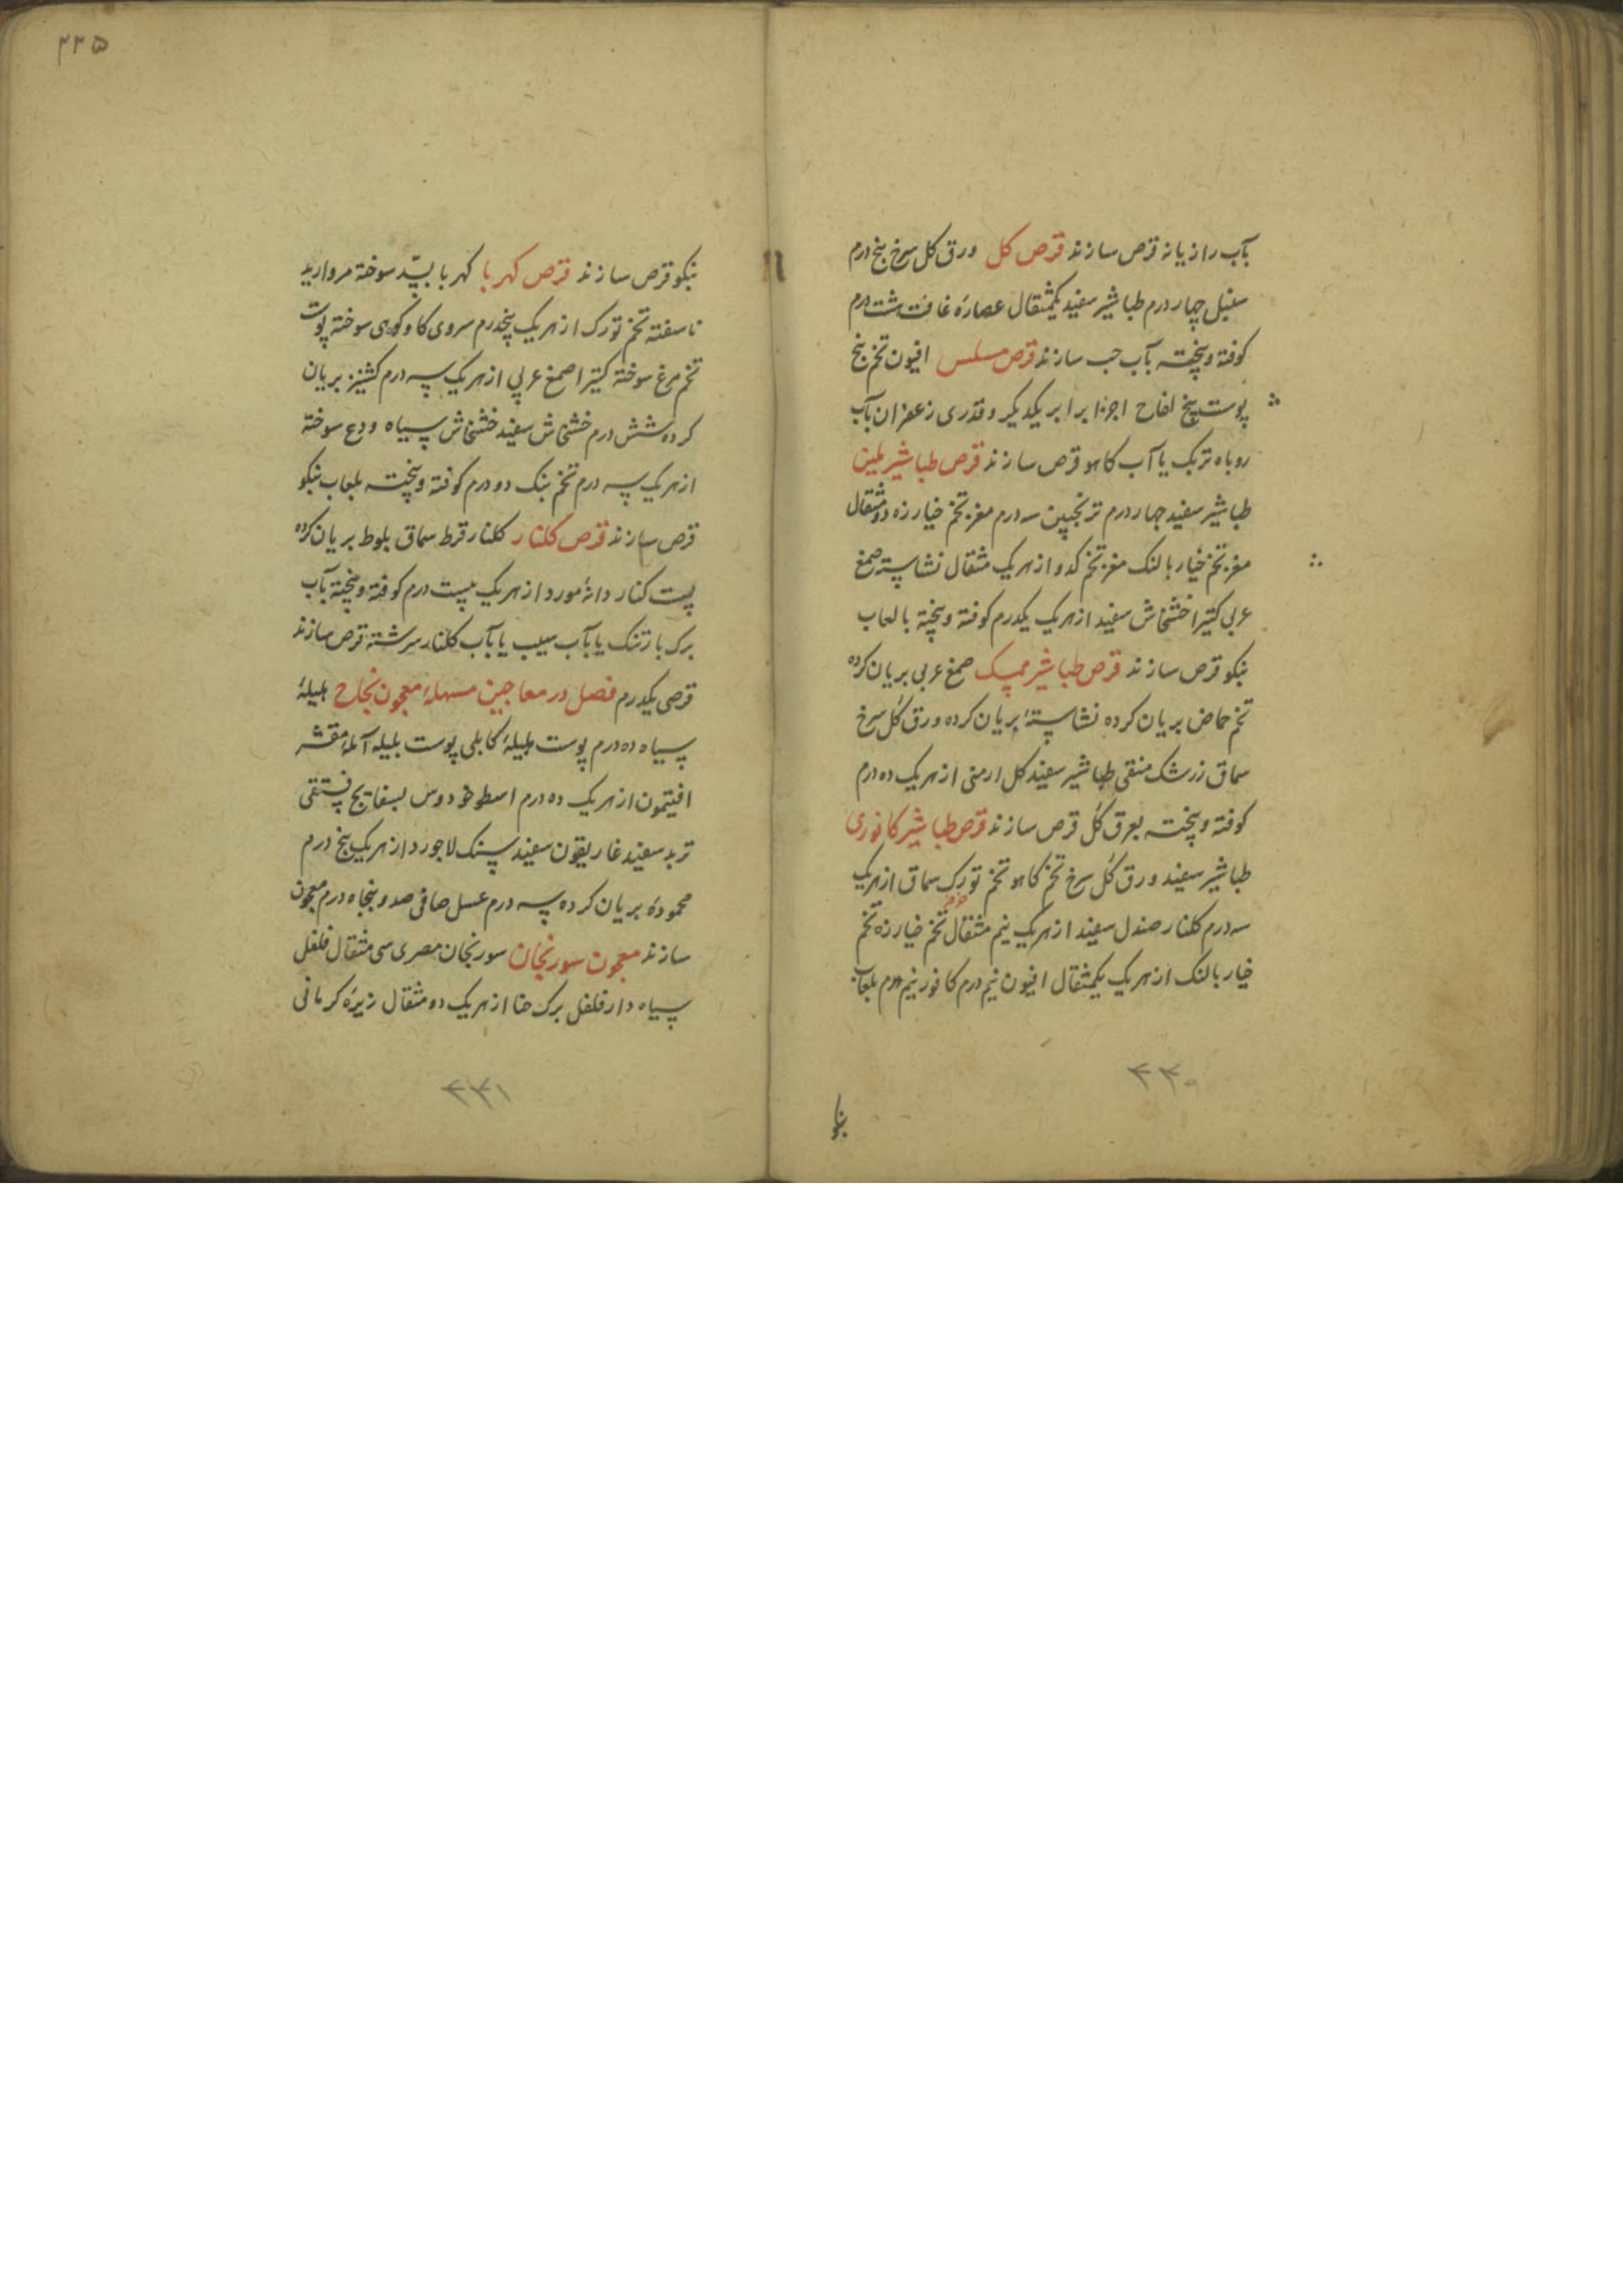 بآب رازیانه قرص سازند قرص کل ورق کل سرخ پنج درم
سنبل چهار درم طباشیر سفید یکمثقال عصارهٔ غافت هشت درم
کوفته و پخته بآب حب سازند قرص مسلس افیون تخم بنج
پوست بیخ لفاح اجزا برابر یکدیکر و قدری زعفران بآب
روباه تربک یا آب کاهو قرص سازند قرص طباشیر ملین
طباشیر سفید چهار درم ترنجبین سه درم مغز تخم خیارزه دو مثقال
مغز تخم خیار بالنک مغز تخم کدو از هر یک مثقال نشاسته صمغ
عربی کتیرا خشخاش سفید از هر یک یکدرم کوفته و پخته با لعاب
بنکو قرص سازند قرص طباشیر ممسک صمغ عربی بریان کرده
تخم حماض بریان کرده نشاستهٔ بریان کرده ورق کل سرخ
سماق زرشک منقی طباشیر سفید کل ارمنی از هر یک ده درم
کوفته و پخته بعرق کل قرص سازند قرص طباشیر کافوری
طباشیر سفید ورق کل سرخ تخم کاهو تخم تورک سماق از هر یک
سه درم کلنار صندل سفید از هر یک نیم مثقال تخم خیارزه تخم
خیار بالنک از هر یک یکمثقال افیون نیم درم کافور نیم درم بلعاب
۴۳۰
بنکو
۲۲۵
بنکو قرص سازند قرص کهربا کهربا بسّد سوخته مروارید
ناسفته تخم تورک از هر یک پنجدرم سروی کاو کوهی سوخته پوست
تخم مرغ سوخته کتیرا صمغ عربی از هر یک سه درم کشنیز بریان
کرده شش درم خشخاش سفید خشخاش سیاه ودع سوخته
از هر یک سه درم تخم بنک دو درم کوفته و پخته بلعاب بنکو
قرص سازند قرص کلنار کلنار قرط سماق بلوط بریان کرده
پست کنار دانهٔ مورد از هر یک بیست درم کوفته و پخته بآب
برک بارتنک یا بآب سیب یا بآب کلنار سرشته قرص سازند
قرصی یکدرم فصل در معاجین مسهله معجون نجاح هلیلهٔ
سیاه ده درم پوست هلیلهٔ کابلی پوست بلیله آملهٔ مقشر
افتیمون از هر یک ده درم اسطوخودوس بسفایج فستقی
تربد سفید غاریقون سفید سنک لاجورد از هر یک پنج درم
محمودهٔ بریان کرده سه درم عسل صافی صد و پنجاه درم معجون
سازند معجون سورنجان سورنجان مصری سی مثقال فلفل
سیاه دارفلفل برک حنا از هر یک دو مثقال زیرهٔ کرمانی
۴۳۱